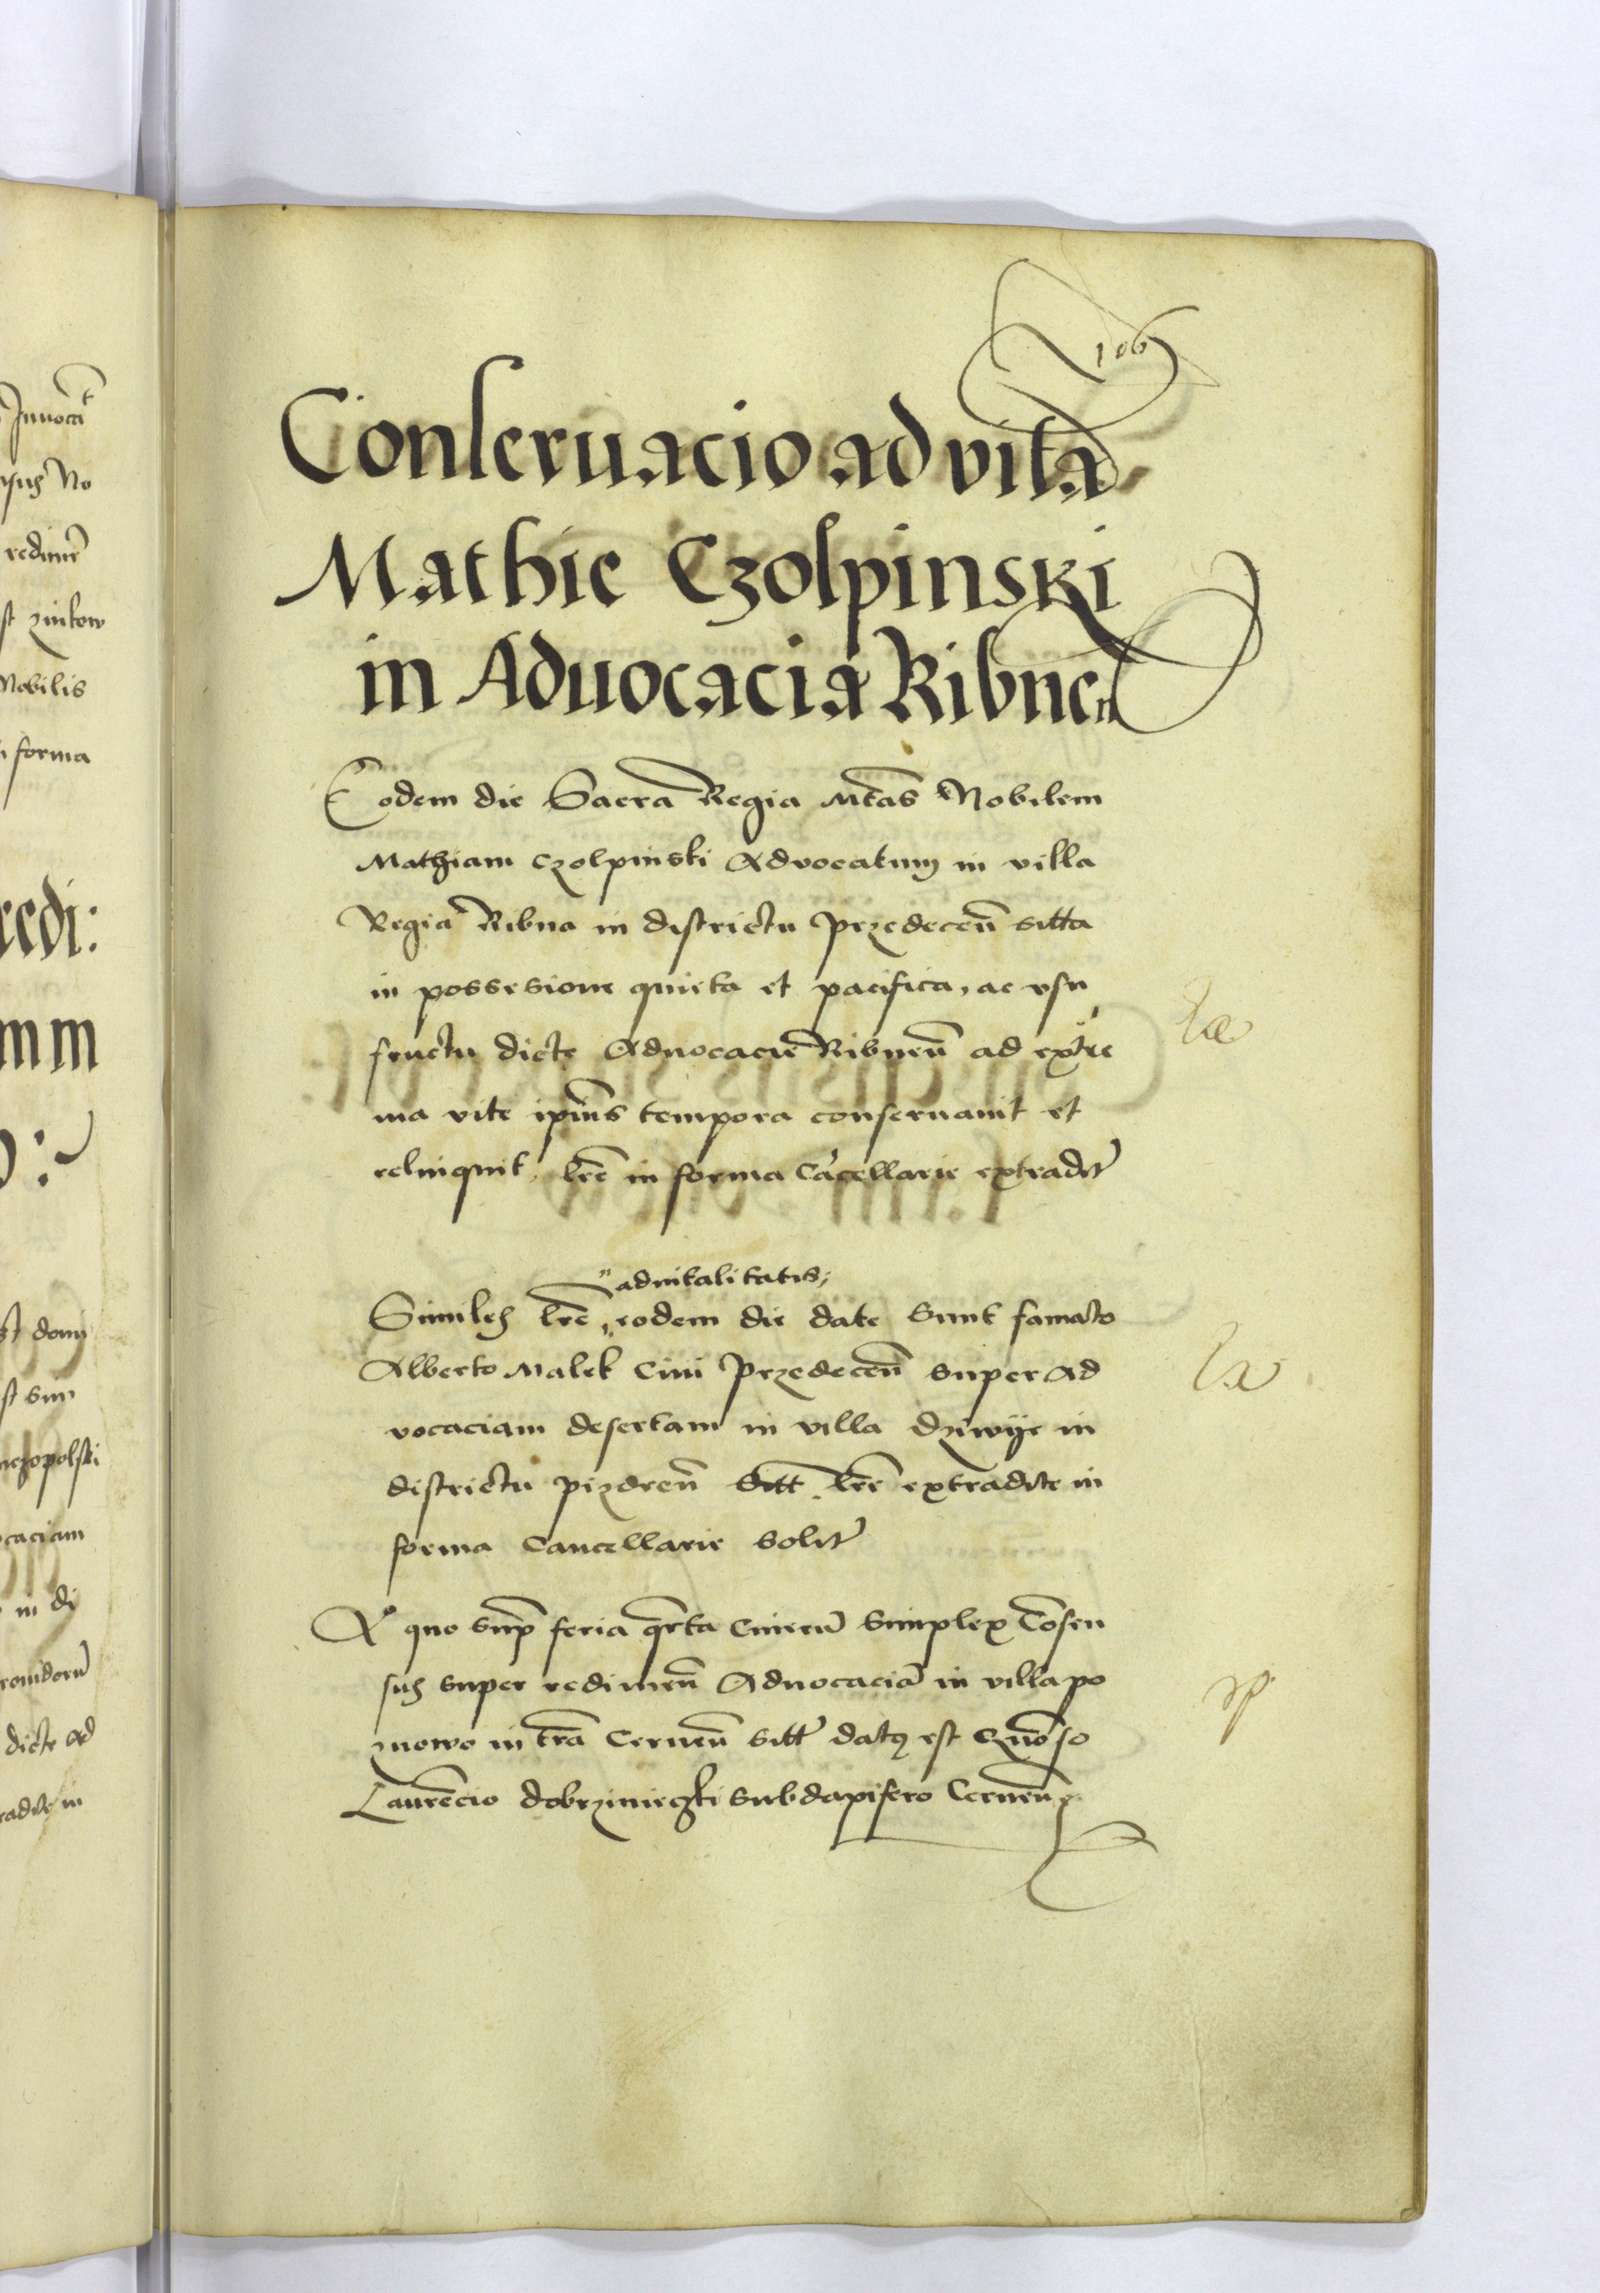 106
Conseruacio ad vitā
Mathie Czolpinski
in Aduocacia Ribneñ
Eodem die Sacra Regia Mtās Nobilem
Mathiam Czolpinski Advocatum in villa
Regia Ribna in districtu Przedeceñ sitta
in possesione quieta et pacifica, ac usu
fructu dicte Aduocacie Ribneñ ad extre
ma vite ipius tempora conseruauit et
relinquit, lrē in forma Cācellarie extradit
"aduitalitatis,
Similes lrē "eodem die date sunt famato
Alberto Malek Ciui Przedeceñ super Ad
vocaciam desertam in villa Dziwije in
districtu pizdreñ sitt lrē extradite in
forma Cancellarie solit
quo sup feria qrta Cinerū Simplex Cōsen
sus super redimeñ Aduocaciā in villa po
mowo in trā Cerneñ sitt dat9 est Gñoso
Laurēcio dobrziniegki Subdapifero Cerneñ
Invocāt
No
redimē
st zinkow
Nobilis
forma
redi:
mm
st domi
st sup
caciam
in di
dicte Ad